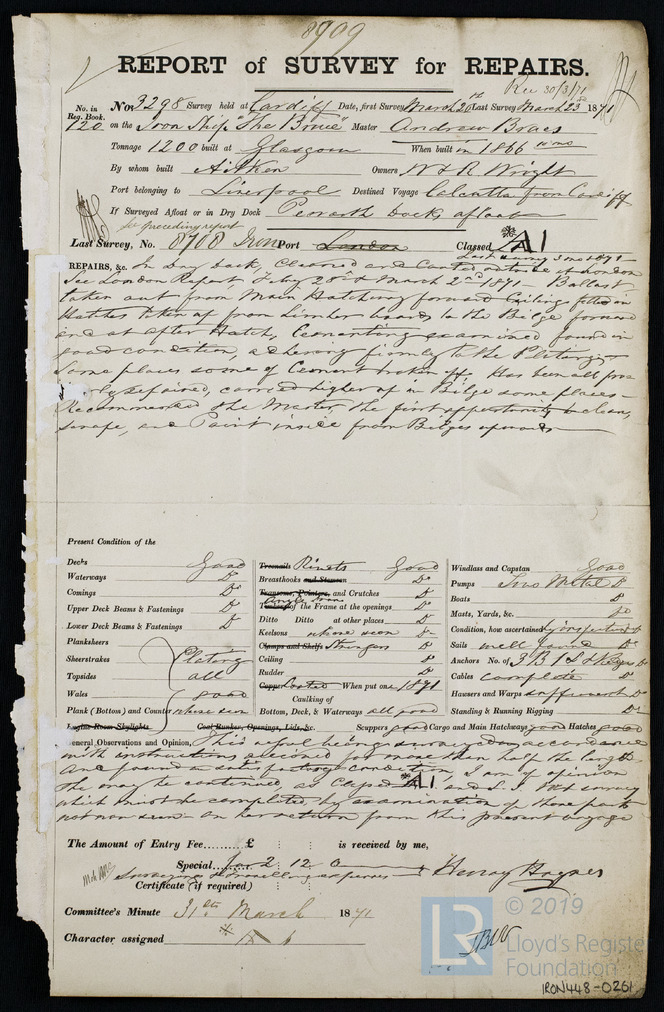 8909
REPORT of SURVEY for REPAIRS.
Rec 30/3/71
No. in Reg. Book. No. 3298 Survey held at Cardiff Date, first Survey March 20th Last Survey March 23rd 1871
120 on the Iron Ship "The Bruce" Master Andrew Braes
Tonnage 1200 built at Glasgow When built in 1866
By whom built Aitken Owners W & R Wright
Port belonging to Liverpool Destined Voyage Calcutta from Cardiff
If Surveyed Afloat or in Dry Dock Penarth Docks afloat
See preceding report
Last Survey, No. 8708 Iron Port London Classed A1
REPAIRS, &c. In Dry dock, Cleaned and Coated outside at London
See London Report Feby 28th & March 2nd 1871. Ballast
taken out from Main Hatchway forward Ceiling fitted in
Hatches taken up from Limber boards to the Bilge forward
and at After Hatch, Cementing examined found in
good condition, adhering firmly to the Plating
Some places some of Cement broken off Has been all pro
rly repaired, carried higher up in Bilge some places
Recommended the Master, the first opportunity to clean,
scrape, and Paint inside from Bilges upwards
Present Condition of the
Decks Good
Waterways Do
Comings Do
Upper Deck Beams & Fastenings Do
Lower Deck Beams & Fastenings Do
Planksheers
Sheerstrakes Plating
Topsides all
Wales good
Plank (Bottom) and Counter where seen
Engine Room Skylights Coal Bunker, Openings, Lids, &c.
Treenails Rivets Good
Breasthooks and Stemson Do
Transoms, Pointers, and Crutches Do
Angle Iron
Timbers of the Frame at the openings Do
Ditto Ditto at other places Do
Keelsons where seen Do
Clamps and Shelfs Stringers Do
Ceiling Do
Rudder Do
Copper Coated When put on 1871
Caulking of
Bottom, Deck, & Waterways all good
Scuppers good Cargo and Main Hatchways good Hatches good
Windlass and Capstan Good
Pumps Two Metal Do
Boats Do
Masts, Yards, &c. Do
Condition, how ascertained by inspection
Sails well found Do
Anchors No. of 3 B 1 S & Kedges Do
Cables complete Do
Hawsers and Warps sufficient Do
Standing & Running Rigging Do
General Observations and Opinion, This vessel being surveyed in accordance
with instructions received for more than half the length
and found in satisfactory condition, I am of opinion
She may be continued as Classed A1, and S.S. No1 survey
which must be completed by examination of those parts
not now seen on her return from this present voyage
The Amount of Entry Fee......£ : : is received by me,
Special..... 2 12 0 Henry Haynes
Surveying & travelling expenses
Certificate (if required) :
Committee's Minute 31st March 1871
Character assigned
© 2019
LR
Lloyd's Register
Foundation
IRON448-0261